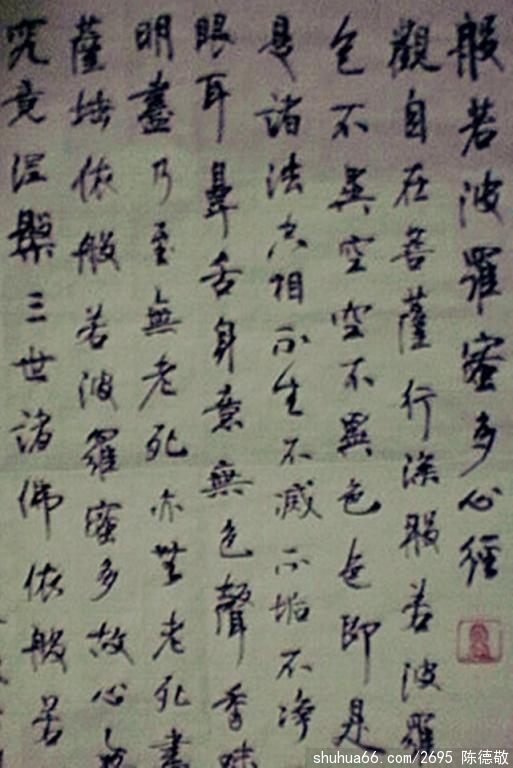 般若波羅蜜多心經
觀自在菩薩行深般若波羅
色不異空空不異色色即是
是諸法空相不生不滅不垢不净
眼耳鼻舌身意無色聲香味
明盡乃至無老死亦無老死盡
薩埵依般若波羅蜜多故心
究竟涅槃三世諸佛依般若
shuhua66.com/2695 陈德敬